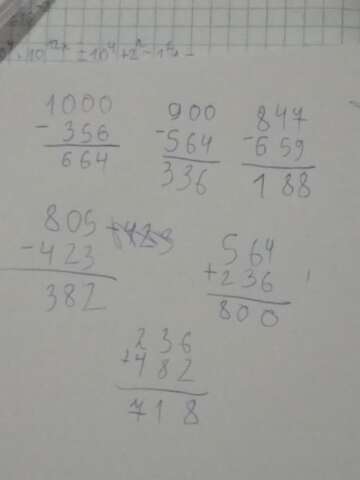 1000
- 356
664
900
- 564
336
847
- 659
188
805
- 423
382
564
+ 236
800
236
+ 482
718